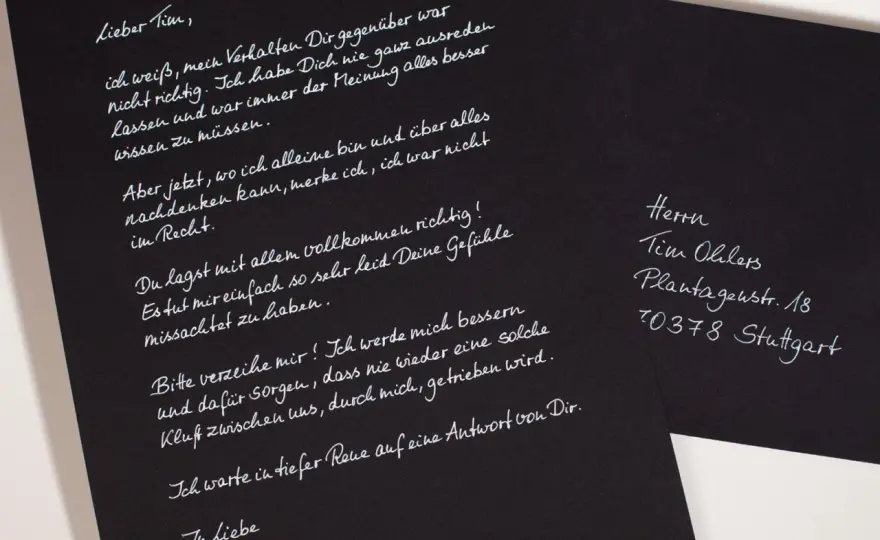 Lieber Tim,
ich weiß, mein Verhalten Dir gegenüber war
nicht richtig. Ich habe Dich nie ganz ausreden
lassen und war immer der Meinung alles besser
wissen zu müssen.
Aber jetzt, wo ich alleine bin und über alles
nachdenken kann, merke ich, ich war nicht
im Recht.
Du lagst mit allem vollkommen richtig!
Es tut mir einfach so sehr leid Deine Gefühle
missachtet zu haben.
Bitte verzeihe mir! Ich werde mich bessern
und dafür sorgen, dass nie wieder eine solche
Kluft zwischen uns, durch mich, getrieben wird.
Ich warte in tiefer Reue auf eine Antwort von Dir.
In Liebe
Herrn
Tim Ohlers
Plantagenstr. 18
70378 Stuttgart